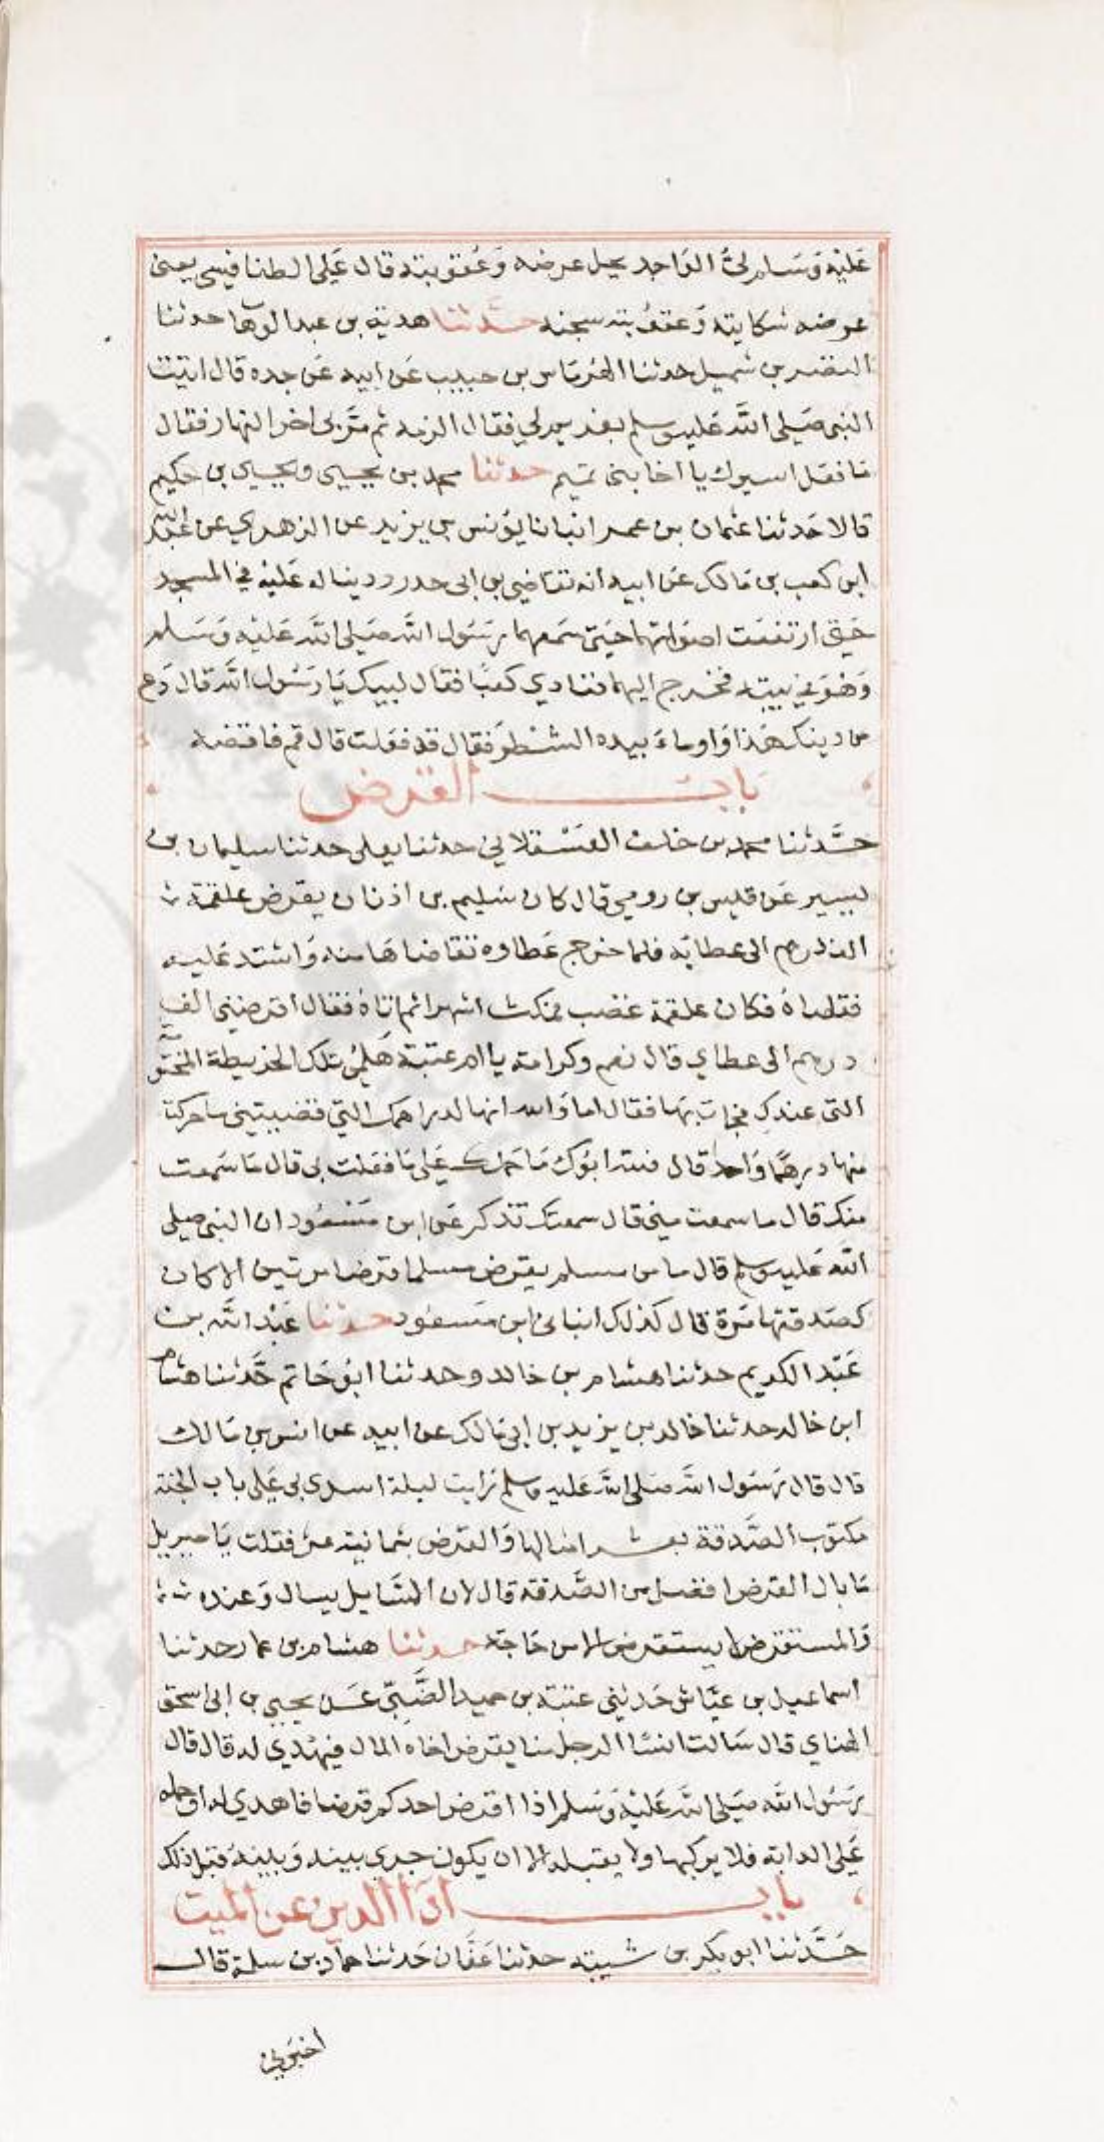 عليه وسلم لي الواجد يحل عرضه وعقوبته قال علي الطنافيسي يعني
عرضه شكايته وعقوبته سجنه حدثنا هدية بن عبد الوهاب حدثنا
النضر بن شميل حدثنا الهرماس بن حبيب عن ابيه عن جده قال اتيت
النبي صلى الله عليه وسلم بغريم لي فقال الزمه ثم مر بي اخر النهار فقال
ما فعل اسيرك يا اخا بني تميم حدثنا محمد بن يحيى ويحيى بن حكيم
قالا حدثنا عثمان بن عمر انبانا يونس بن يزيد عن الزهري عن عبد الله
ابن كعب بن مالك عن ابيه انه تقاضى بن ابي حدرد دينا له عليه في المسجد
حتى ارتفعت اصواتهما حتى سمعهما رسول الله صلى الله عليه وسلم
وهو في بيته فخرج اليهما فنادى كعبا فقال لبيك يا رسول الله قال دع
من دينك هذا واوماء بيده الشطر فقال قد فعلت قال قم فاقضه
باب القرض
حدثنا محمد بن خلف العسقلاني حدثنا يعلى حدثنا سليمان بن
يسير عن قليس بن رومي قال كان سليم بن اذنان يقرض علقمة
الف درهم الى عطايه فلما خرج عطاوه تقاضاها منه واشتد عليه
فقضاه فكان علقمة غضب فمكث اشهرا ثم اتاه فقال اقرضني الف
درهم الى عطاي قال نعم وكرامة يا ام عتبة هلمي تلك الخريطة المختومة
التي عندك فجات بها فقال اما والله انها لدراهمك التي قضيتني ما حركت
منها درهما واحدا قال فلله ابوك ما حملك على ما فعلت بي قال ما سمعت
منك قال ما سمعت مني قال سمعتك تذكر عن ابن مسعود ان النبي صلى
الله عليه وسلم قال ما من مسلم يقرض مسلما قرضا مرتين الا كان
كصدقتها مرة قال كذلك انباني ابن مسعود حدثنا عبد الله بن
عبد الكريم حدثنا هشام بن خالد وحدثنا ابو حاتم حدثنا هشام
ابن خالد حدثنا خالد بن يزيد بن ابي مالك عن ابيه عن انس بن مالك
قال قال رسول الله صلى الله عليه وسلم رايت ليلة اسري بي على باب الجنة
مكتوب الصدقة بعشر امثالها والقرض بثمانية عشر فقلت يا جبريل
ما بال القرض افضل من الصدقة قال لان السايل يسال وعنده
والمستقرض لا يستقرض الا من حاجة حدثنا هشام بن عمار حدثنا
اسماعيل بن عياش حدثني عتبة بن حميد الضبي عن يحيى بن ابي اسحق
الهناي قال سالت انسا الرجل منا يقرض اخاه المال فيهدي له قال قال
رسول الله صلى الله عليه وسلم اذا اقرض احدكم قرضا فاهدي له او حمله
على الدابة فلا يركبها ولا يقبله الا ان يكون جرى بينه وبينه قبل ذلك
باب اداا الدين عن الميت
حدثنا ابو بكر بن شيبة حدثنا عفان حدثنا حماد بن سلمة قال
اخبرني